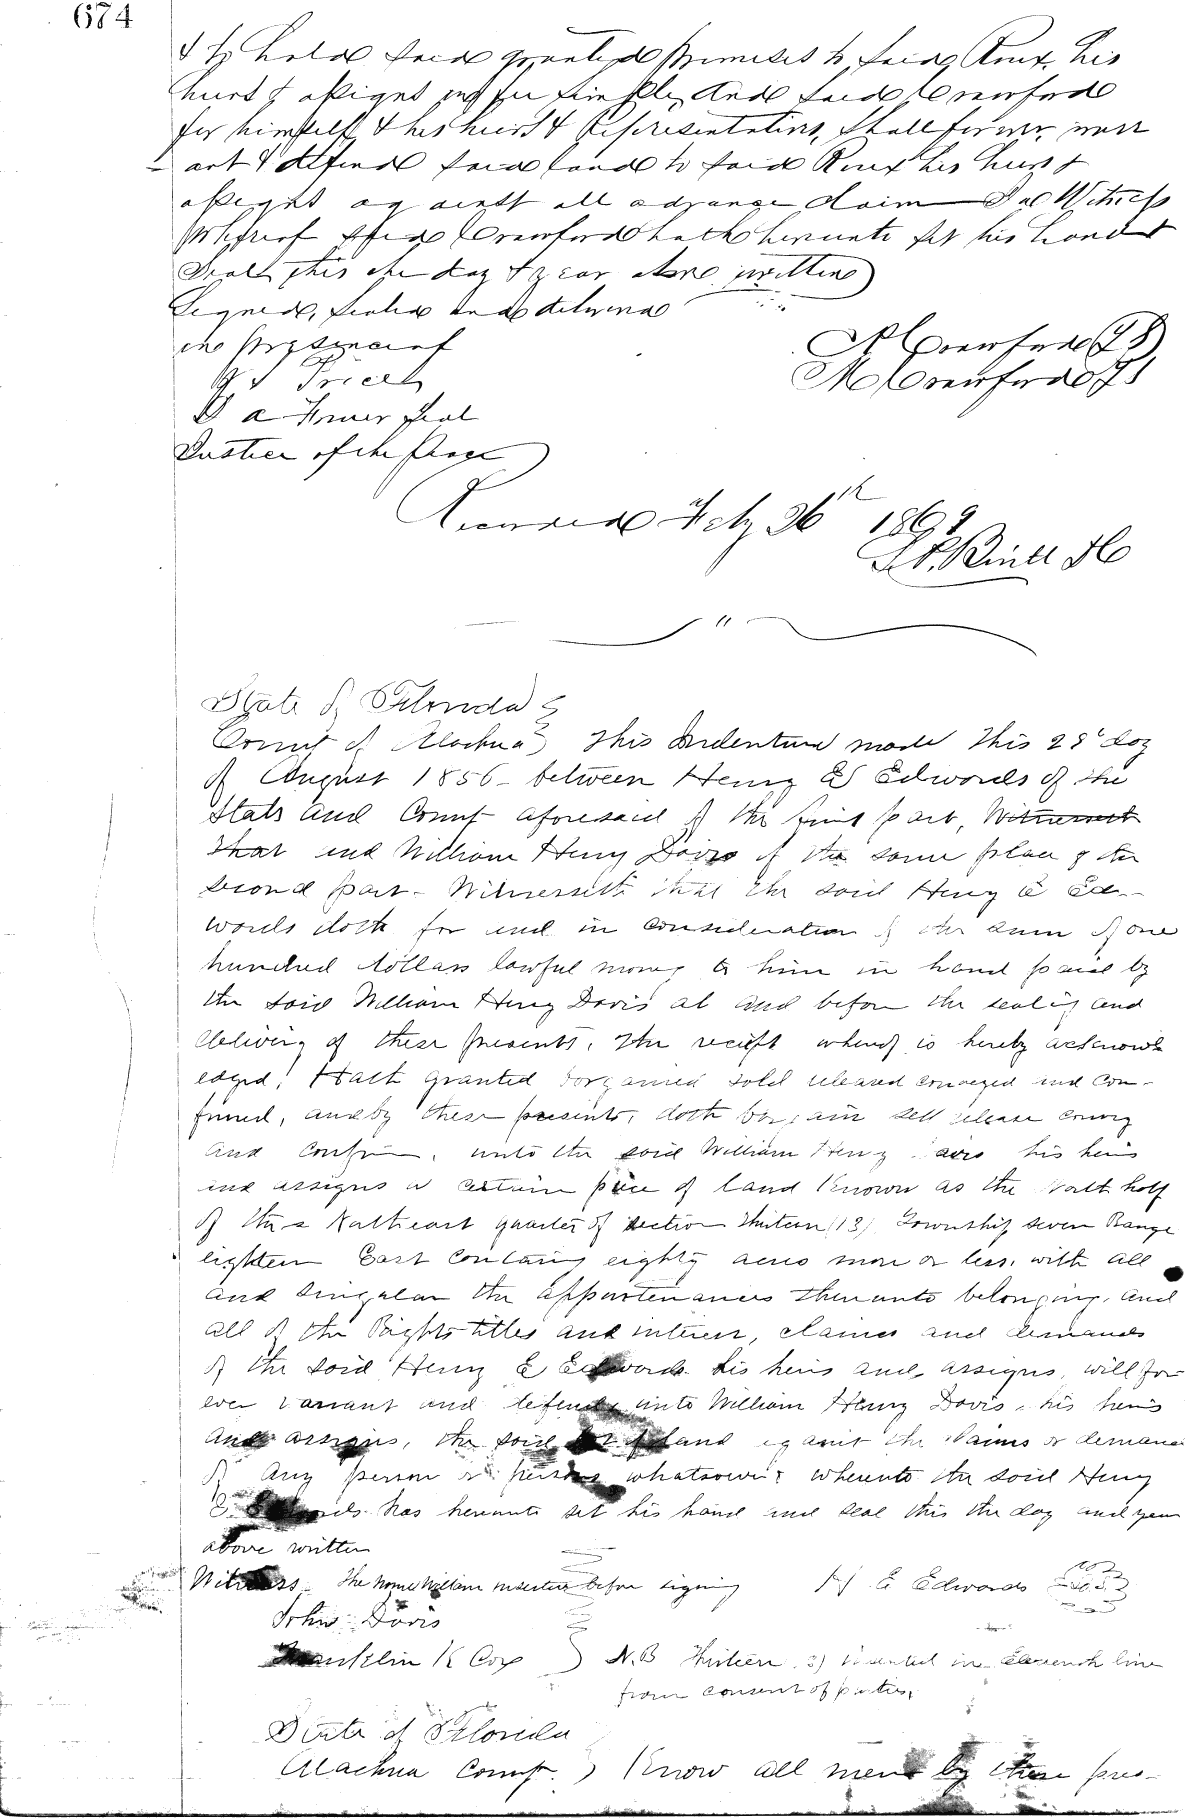 674
& to hold said granted premises to said Roux, his
heirs & assigns in fee simple, And said Crawford
for himself & his heirs & Representatives, shall forever warr
ant & defend said land to said Roux his heirs &
assigns against all adverse claim In Witness
Whereof said Crawford hath hereunto set his hand &
Seal, this the day & year above written
Signed, sealed and delivered
in presence of
Price
Seal
Justice of the Peace
Crawford
M Crawford
Recorded Feby 26th 1869
State of Florida
County of Alachua This Indenture made this 29th day
of August 1856 - between Henry E Edwards of the
State and County aforesaid of the first part, Witnesseth
that and William Henry Davis of the same place of the
second part - Witnesseth that the said Henry E Ed-
wards doth for and in consideration of the sum of one
hundred dollars lawful money to him in hand paid by
the said William Henry Davis at and before the sealing and
delivery of these presents, the receipt whereof is hereby acknowl
edged, Hath granted bargained sold released conveyed and con-
firmed, and by these presents, doth bargain sell release convey
and confirm, unto the said William Henry Davis his heirs
and assigns a certain piece of land Known as the North half
of the Northeast quarter of section thirteen (13) Township seven Range
eighteen East containg eighty acres more or less, with all
and singular the appurtenances thereunto belonging, and
all of the Rights titles and interest, claims and demands
of the said Henry E Edwards his heirs and assigns, will for
ever warrant and defend unto William Henry Davis, his heirs
and assigns, the said land against the claims or demand
of any person or persons whatsoever; whereunto the said Henry
E Edwards has hereunto set his hand and seal this the day and year
above written
Witness - The name William inserted before signing H E Edwards
John Davis
Franklin K Cox N.B Thirteen 13) inserted in Eleventh line
from consent of parties,
State of Florida
Alachua County. Know all men by these pres-